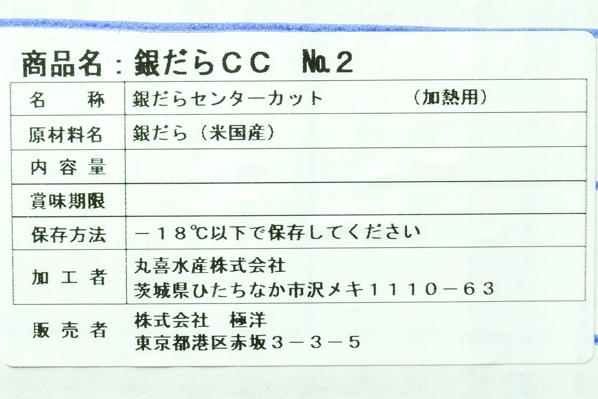 商品名：銀だらＣＣ　№２
名　称　銀だらセンターカット　（加熱用）
原材料名　銀だら（米国産）
内容量
賞味期限
保存方法　－１８℃以下で保存してください
加工者　丸喜水産株式会社
茨城県ひたちなか市沢メキ１１１０－６３
販売者　株式会社　極洋
東京都港区赤坂３－３－５